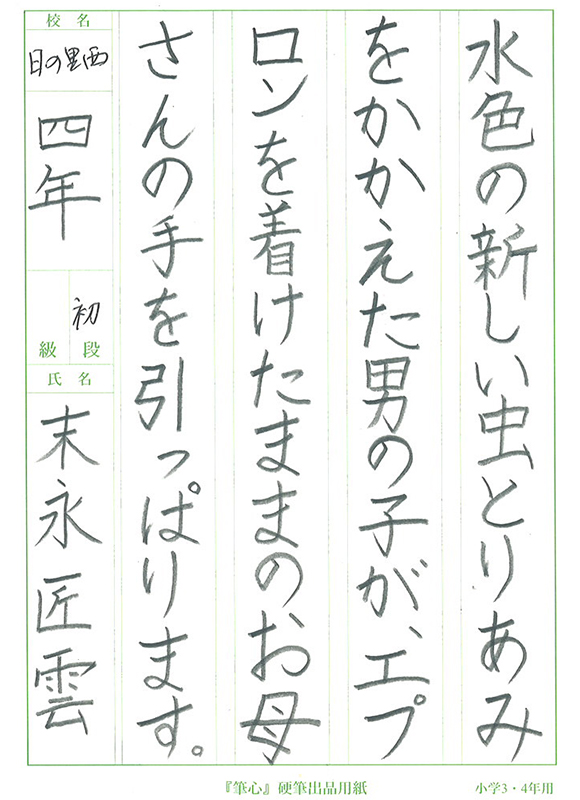 水色の新しい虫とりあみ
をかかえた男の子が、エプ
ロンを着けたままのお母
さんの手を引っぱります。
校名
日の里西
四年
初
段
級
氏名
末永匠雲
『筆心』硬筆出品用紙
小学3・4年用